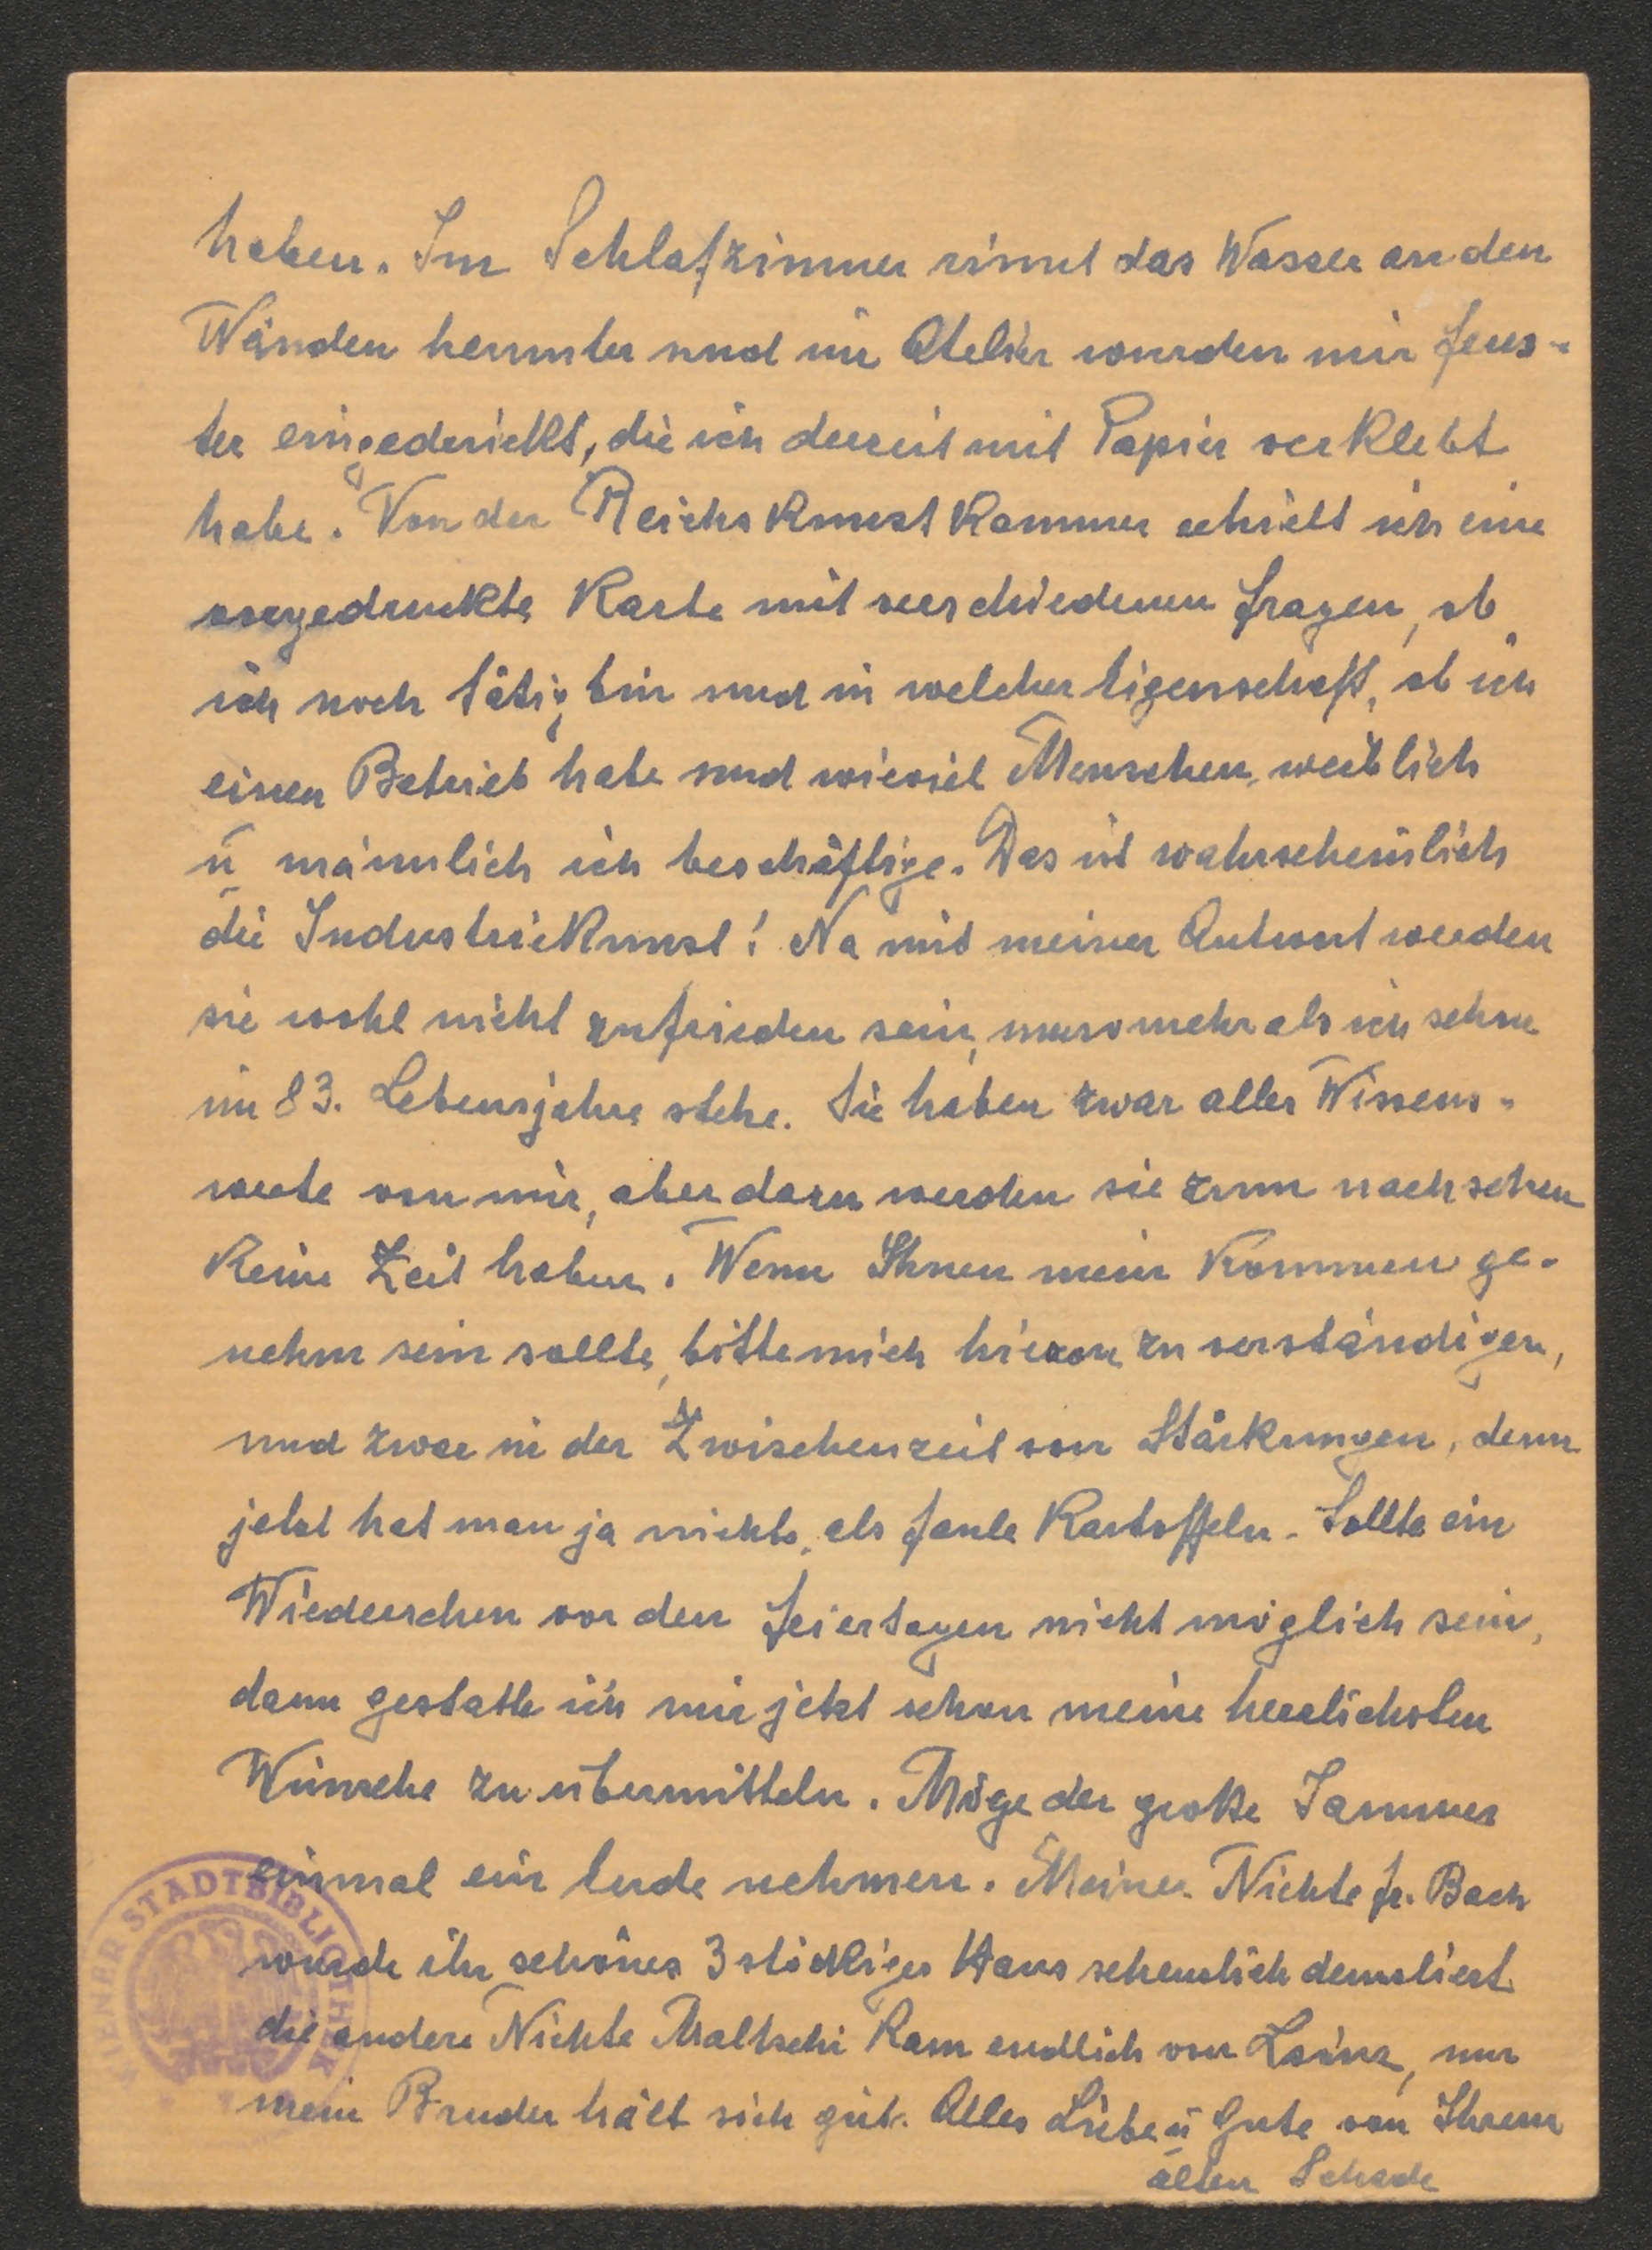 haben. Im Schlafzimmer rinnt das Wasser an den
Wänden herunter und im Atelier wurden mir Fens-
ter eingedrückt, die ich derzeit mit Papier verklebt
habe. Von der Reichskunstkammer erhielt ich eine
vorgedruckte Karte mit verschiedenen Fragen, ob
ich noch tätig bin und in welcher Eigenschaft, ob ich
einen Betrieb habe und wieviel Menschen, weiblich
u männlich ich beschäftige. Das ist wahrscheinlich
die Industriekunst! Na mit meiner Antwort werden
sie wohl nicht zufrieden sein, umsomehr als ich schon
im 83. Lebensjahre stehe. Sie haben zwar alles Wissens-
werte von mir, aber dazu werden sie zum nachsehen
keine Zeit haben. Wenn Ihnen mein Kommen ge-
nehm sein sollte, bitte mich hievon zu verständigen,
und zwar in der Zwischenzeit von Stärkungen, denn
jetzt hat man ja nichts, als faule Kartoffeln. Sollte ein
Wiedersehen vor den Feiertagen nicht möglich sein,
dann gestatte ich mir jetzt schon meine herzlichsten
Wünsche zu übermitteln. Möge der große Jammer
einmal ein Ende nehmen. Meiner Nichte Fr. Bach
wurde ihr schönes 3 stöckiges Haus scheuslich demoliert
die andere Nichte Maltschi kam endlich von Lainz, nur
mein Bruder hält sich gut. Alles Liebe u Gute von Ihrem
alten Schade
WIENER STADTBIBLIOTHEK